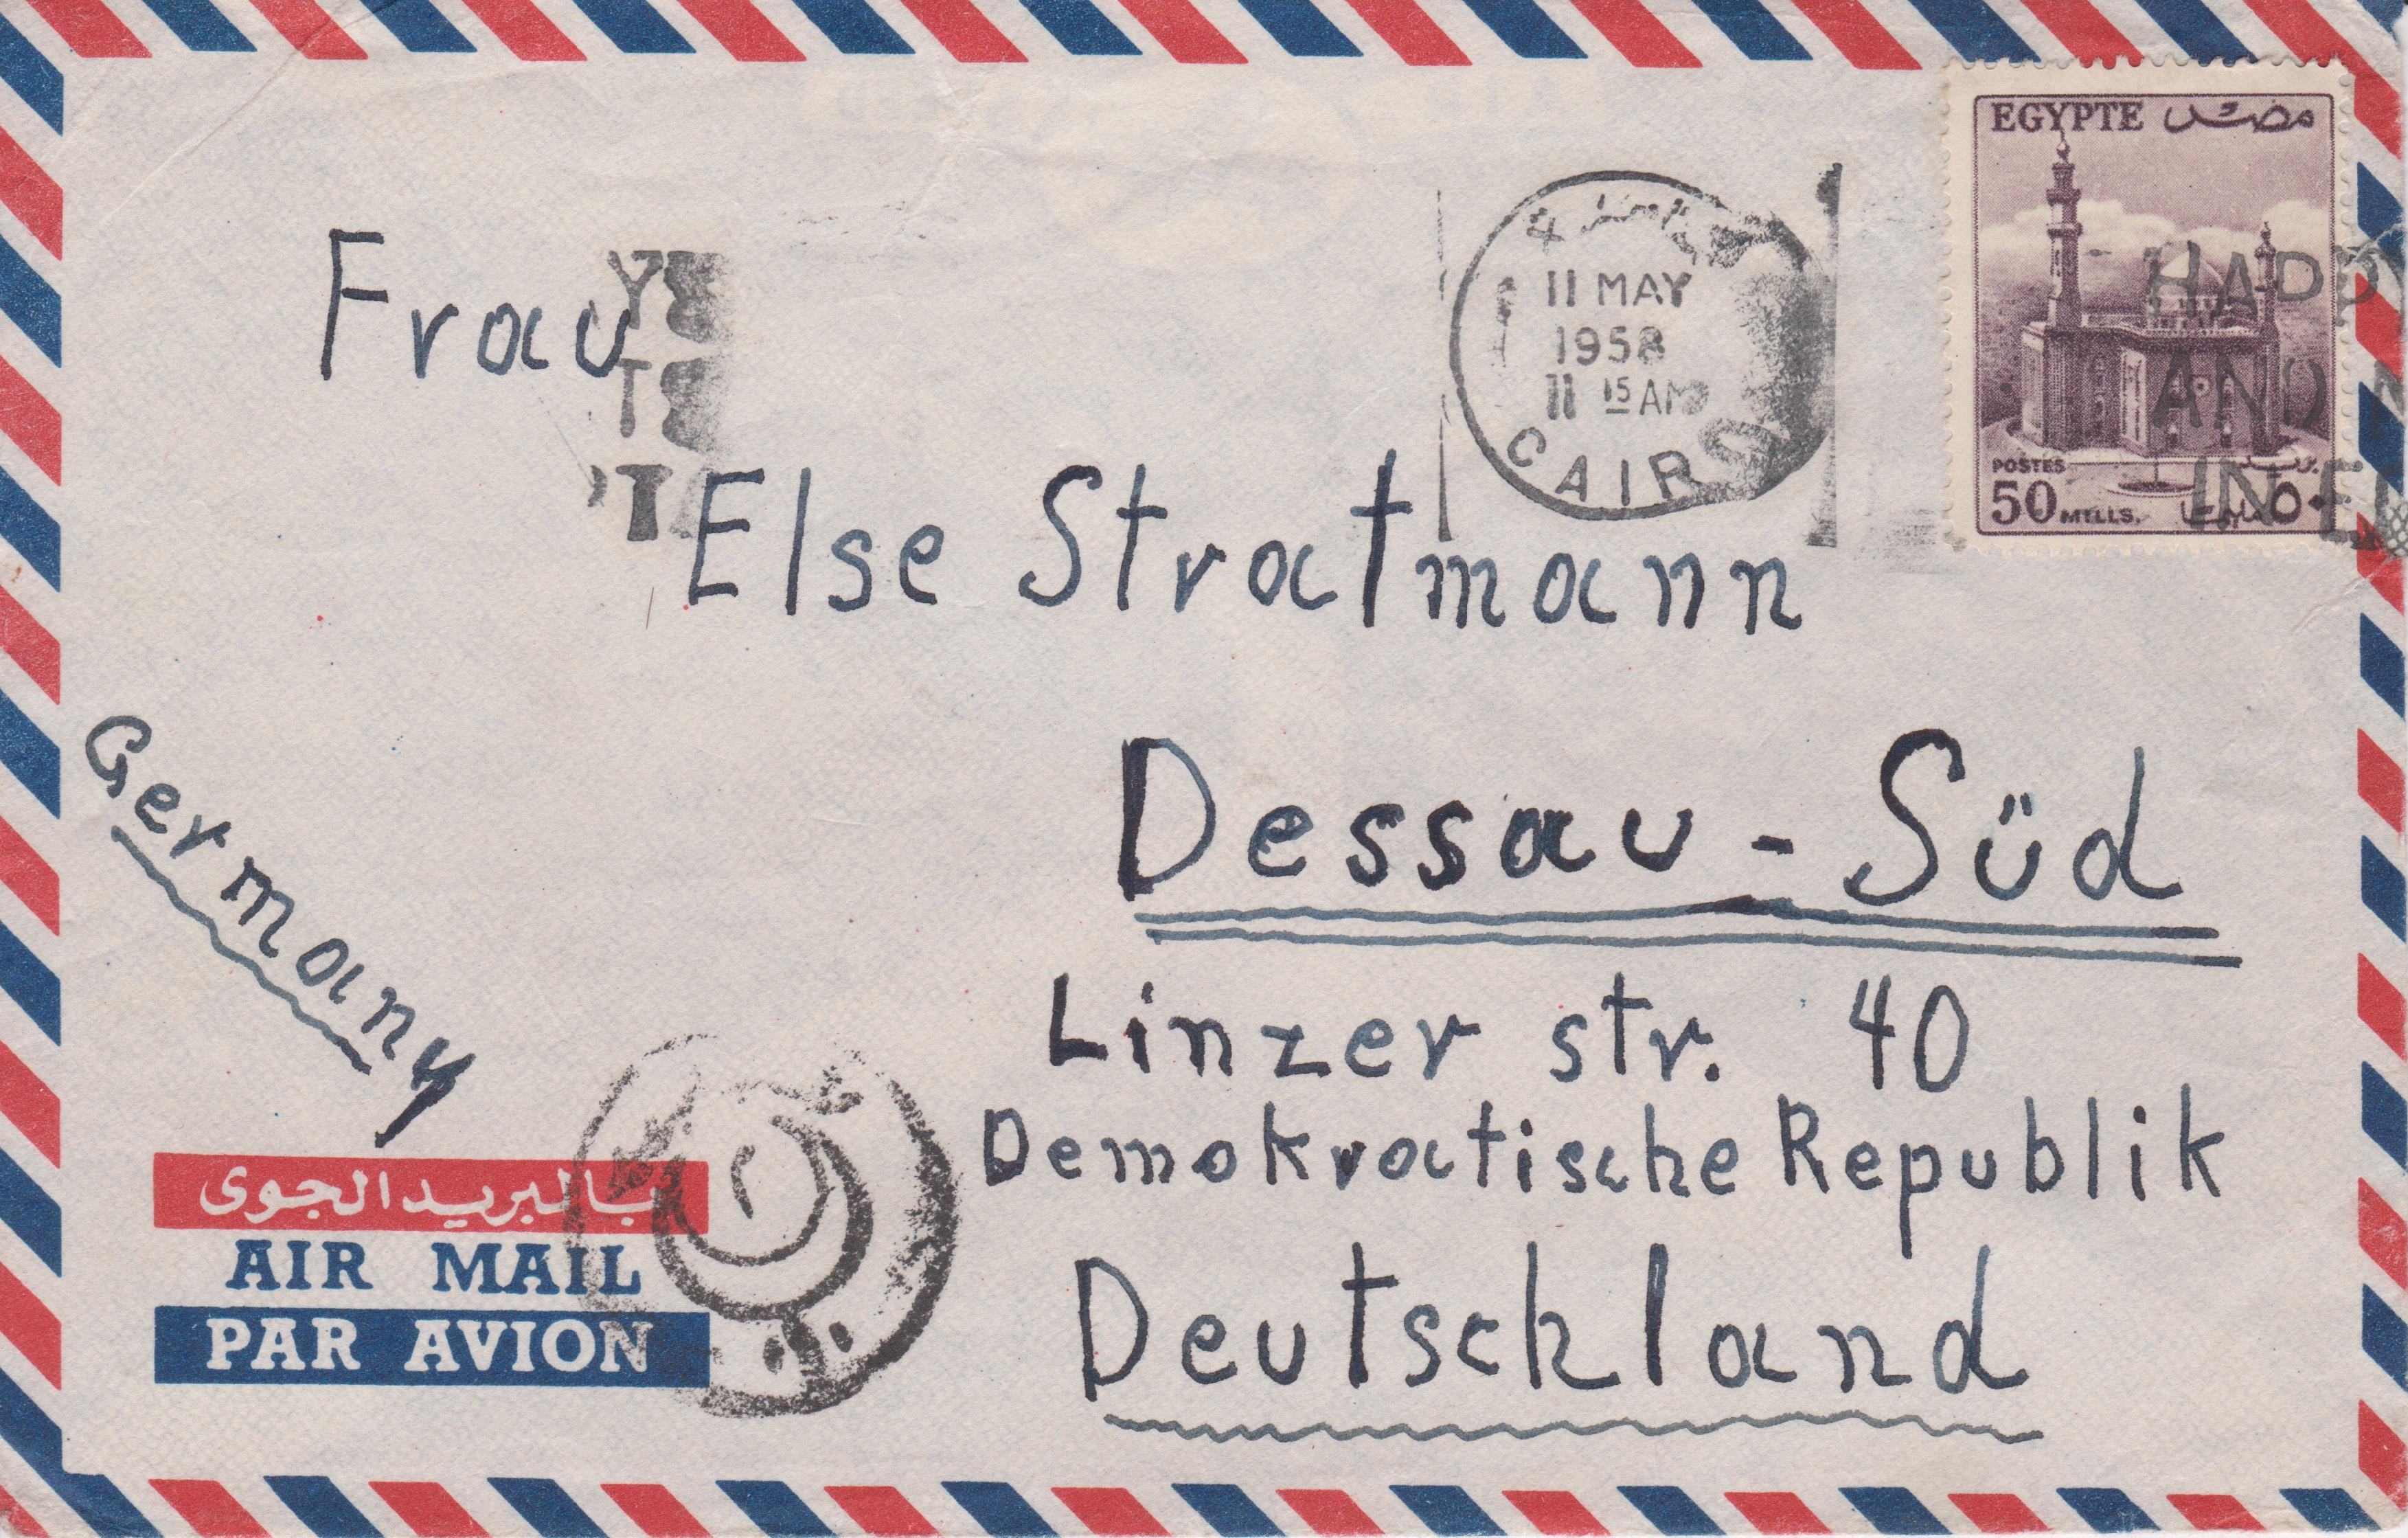 EGYPTE مصر
HAPP
AND
IN E
POSTES بريد
50 MILLS. ٥٠ مليما
11 MAY
1958
11 15 AM
CAIRO
Frau
Else Stratmann
Dessau - Süd
Linzer str. 40
Demokratische Republik
Deutschland
Germany
بالبريد الجوى
AIR MAIL
PAR AVION